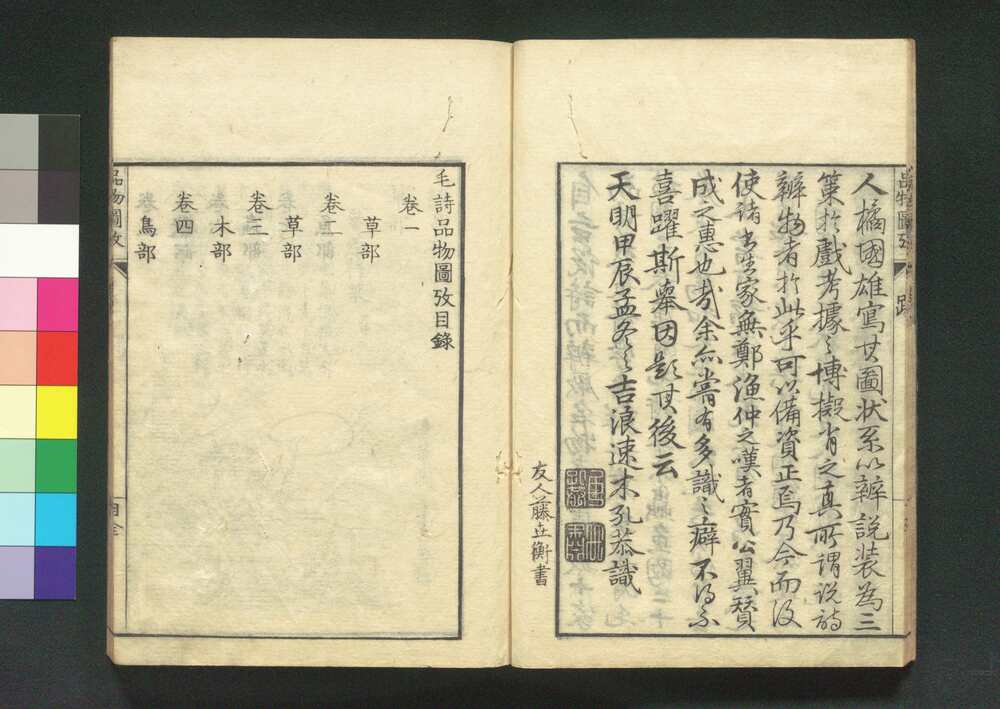 人橘國雄寫其圖狀系以辨説装為三
策於戲考據之博擬肖之真所謂説詩
辨物者於此乎可以備資正焉乃今而後
使諸書生家無鄭漁仲之嘆者實公翼賛
成之惠也哉余亦嘗有多識之癖不得不
喜躍斯舉因題其後云
天明甲辰孟冬之吉浪速木孔恭識
友人藤世衡書
品物圖攷
跋
毛詩品物圖攷目錄
卷一
草部
卷二
草部
卷三
木部
卷四
鳥部
品物圖攷